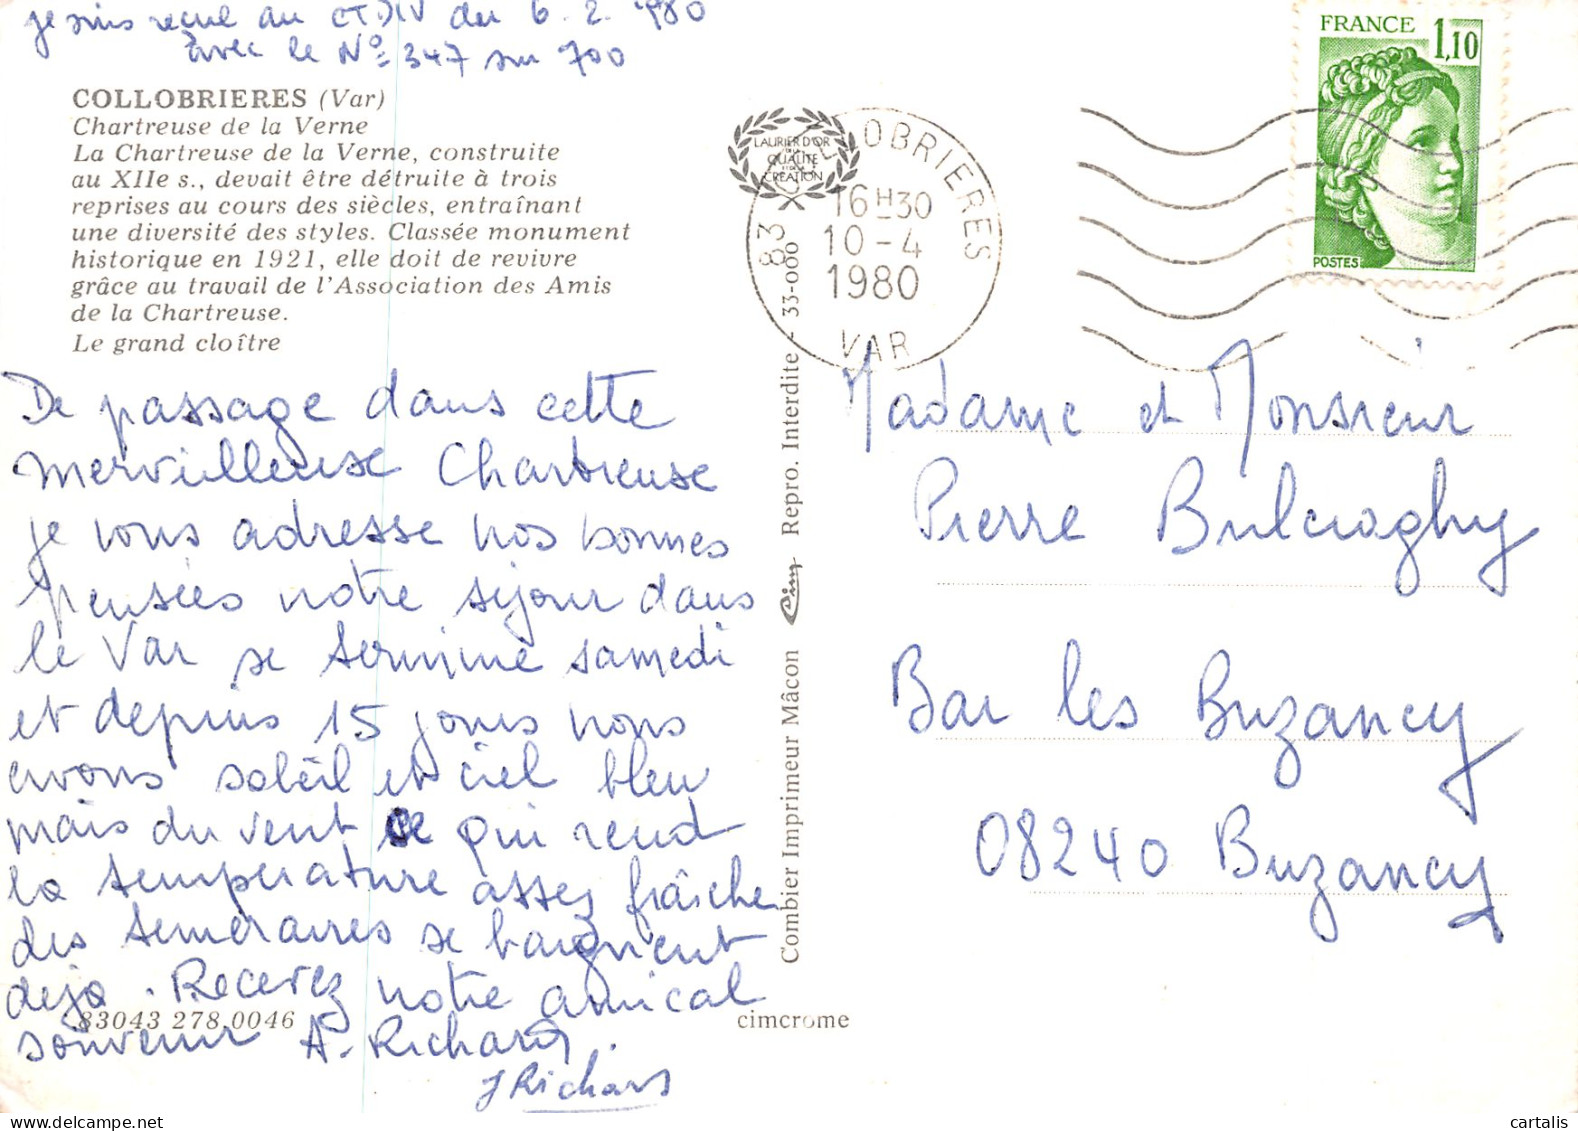 je suis reçue au CTDIV du 6.2.1980
avec le N° 347 sur 700
COLLOBRIERES (Var)
Chartreuse de la Verne
La Chartreuse de la Verne, construite
au XIIe s., devait être détruite à trois
reprises au cours des siècles, entraînant
une diversité des styles. Classée monument
historique en 1921, elle doit de revivre
grâce au travail de l'Association des Amis
de la Chartreuse.
Le grand cloître
De passage dans cette
merveilleuse Chartreuse
je vous adresse nos bonnes
pensées notre séjour dans
le Var se termine samedi
et depuis 15 jours nous
avons soleil et ciel bleu
mais du vent ce qui rend
la température assez fraîche
des téméraires se baignent
déjà. Recevez notre amical
souvenir A. Richard.
J Richard
83043 278.0046
cimcrome
Combier Imprimeur Mâcon Cim Repro. Interdite - 33-000
LAURIER D'OR
DE LA
QUALITÉ
ET DE LA
CRÉATION
83 COLLOBRIERES
16H30
10-4
1980
VAR
FRANCE 1,10
POSTES
Madame et Monsieur
Pierre
Bar les Buzancy
08240 Buzancy
cartalis